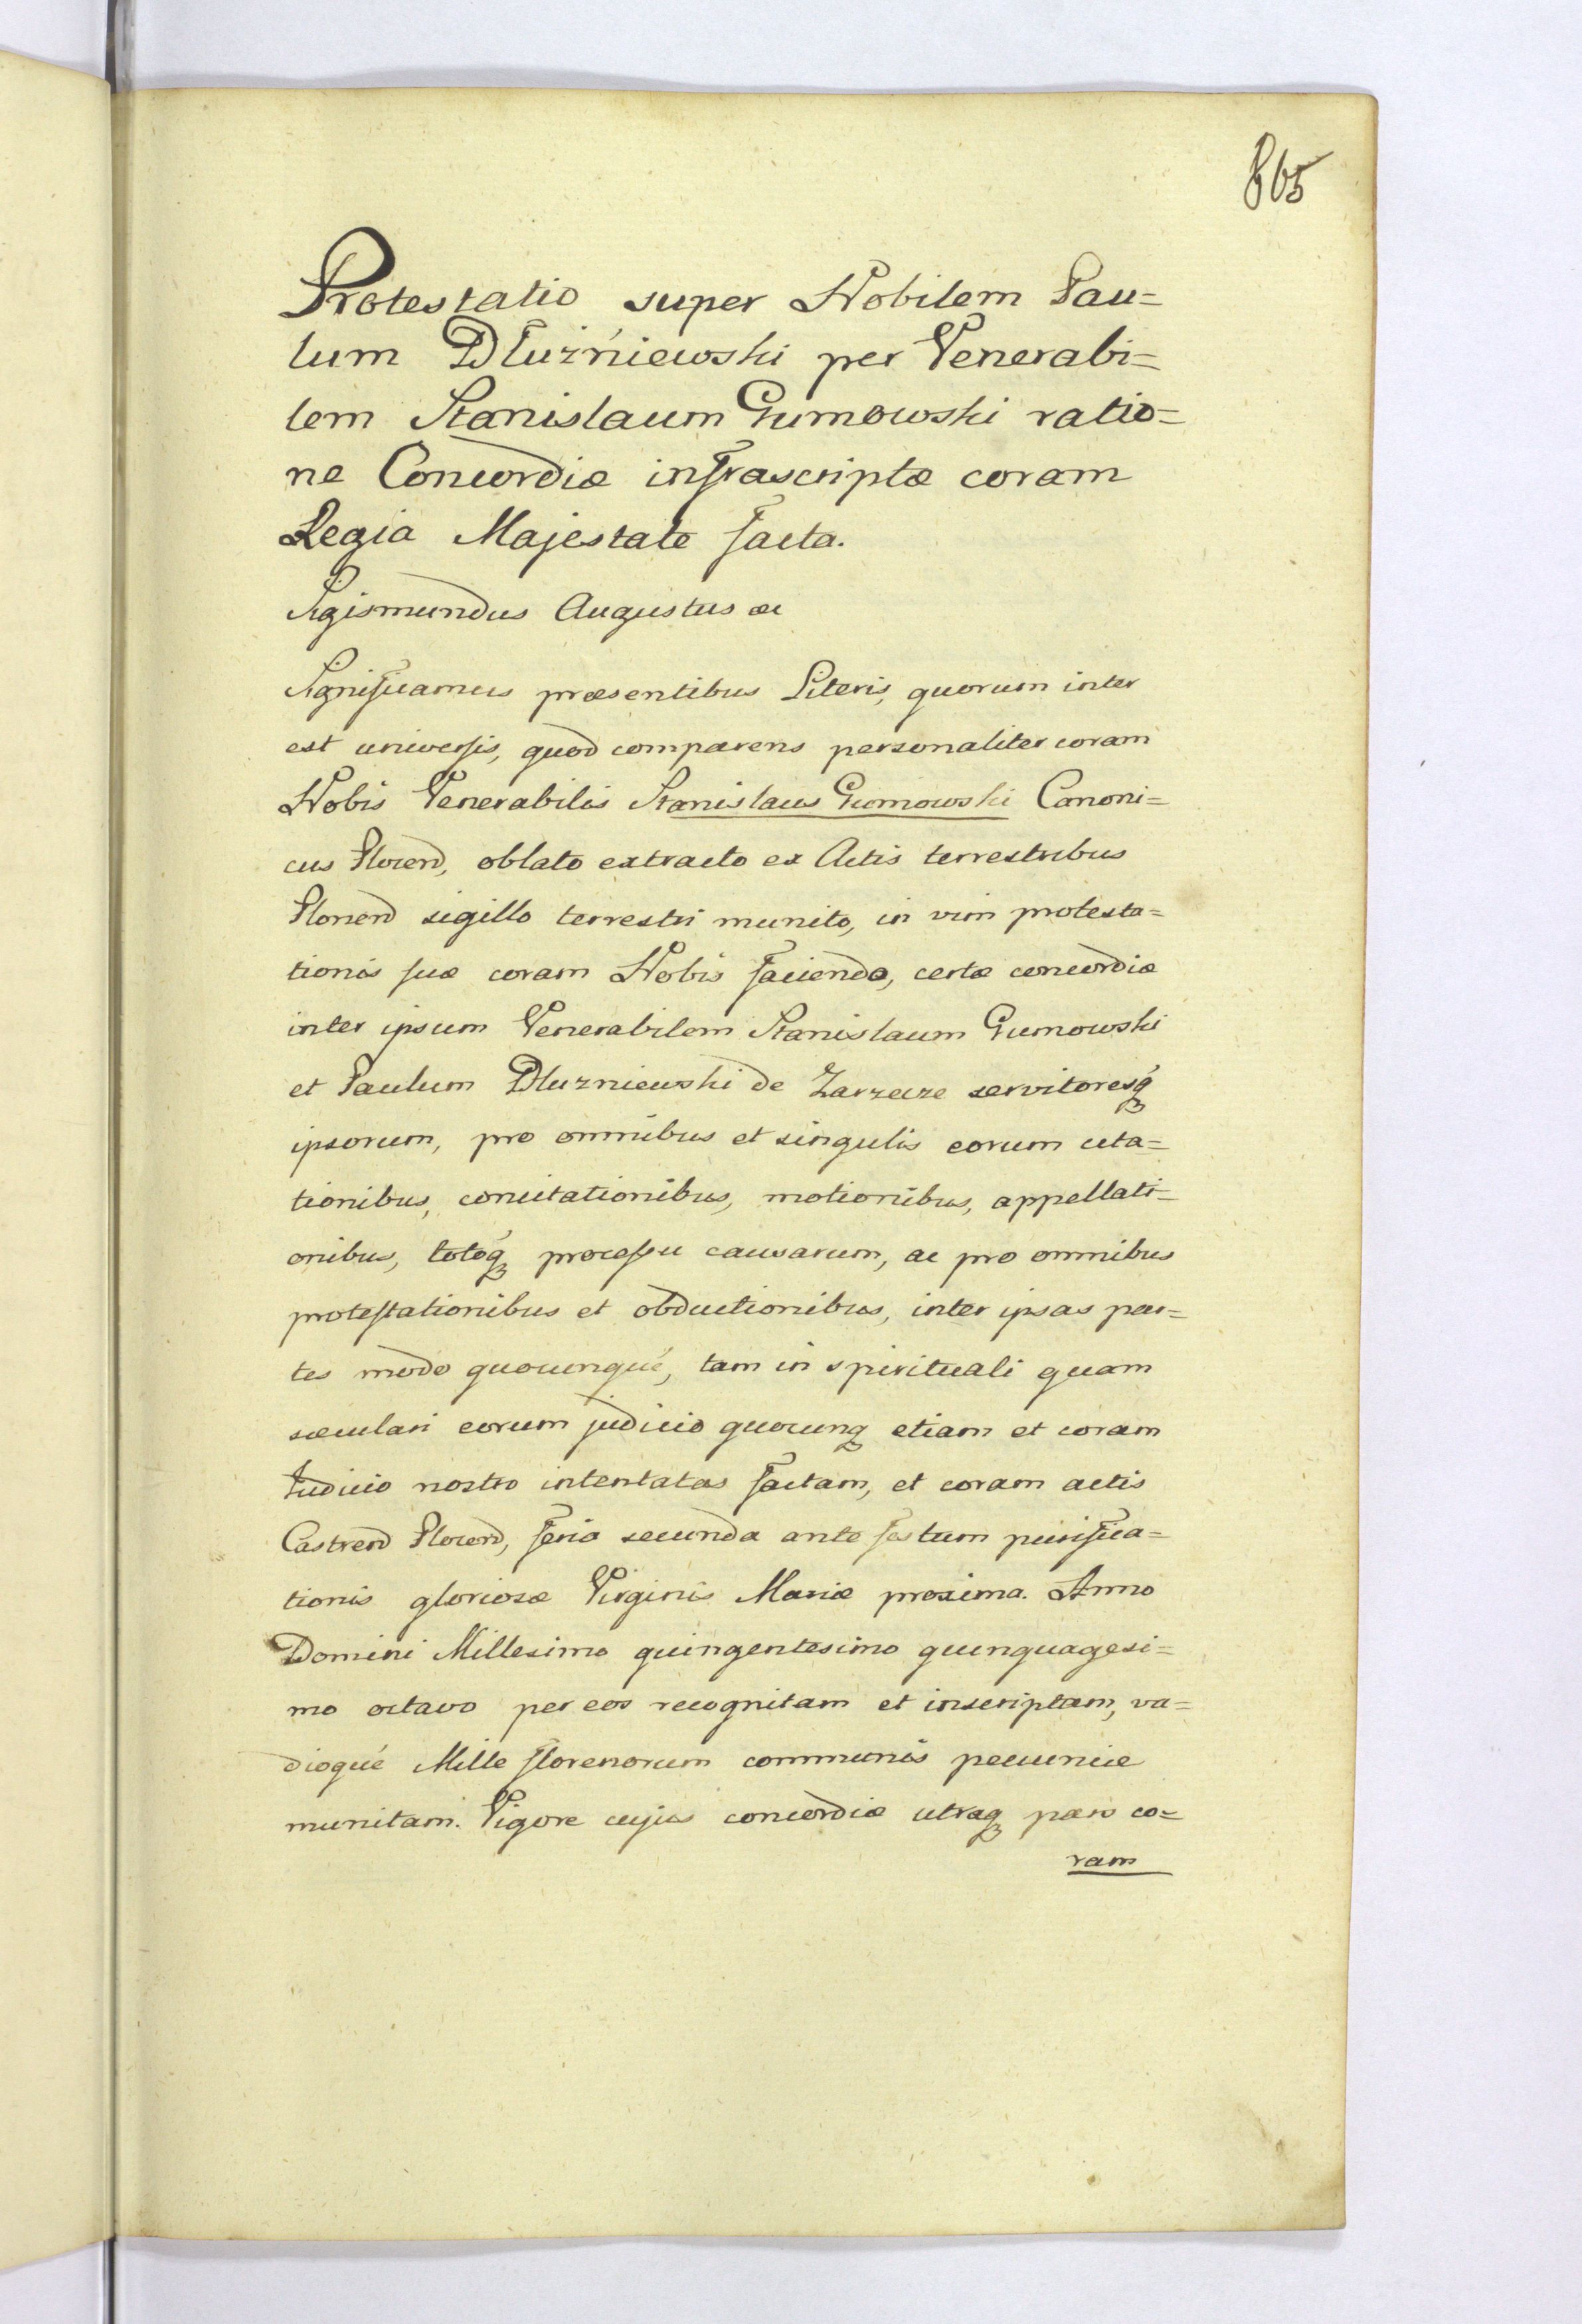 865
Protestatio super Nobilem Pau=
lum Dłuźniewski per Venerabi=
lem Stanislaum Gumowski ratio=
ne Concordiæ infrascriptæ coram
Regia Majestate facta.
Sigismundus Augustus &c
Significamus præsentibus Literis, quorum inter
est universis, quod comparens personaliter coram
Nobis Venerabilis Stanislaus Gumowski Canoni=
cus Plocen, oblato extracto ex Actis terrestribus
Plonen sigillo terrestri munito, in vim protesta=
tionis suæ coram Nobis faciendo, certæ concordiæ
inter ipsum Venerabilem Stanislaum Gumowski
et Paulum Dluzniewski de Zarzecze servitoresq́
ipsorum, pro omnibus et singulis eorum cita=
tionibus, concitationibus, motionibus, appellati=
onibus, totoq́ processu causarum, ac pro omnibus
protestationibus et obductionibus, inter ipsas par=
tes modo quocunqué, tam in spirituali quam
sæculari eorum judicio quocunq etiam et coram
Iudicio nostro intentatas factam, et coram actis
Castren Plocen, feria secunda ante festum purifica=
tionis gloriosæ Virginis Mariæ proxima. Anno
Domini Millesimo quingentesimo quinquagesi=
mo octavo per eos recognitam et inscriptam, va=
dioqué Mille florenorum communis pecuniæ
munitam. Vigore cujus concordiæ utraq pars co=
ram